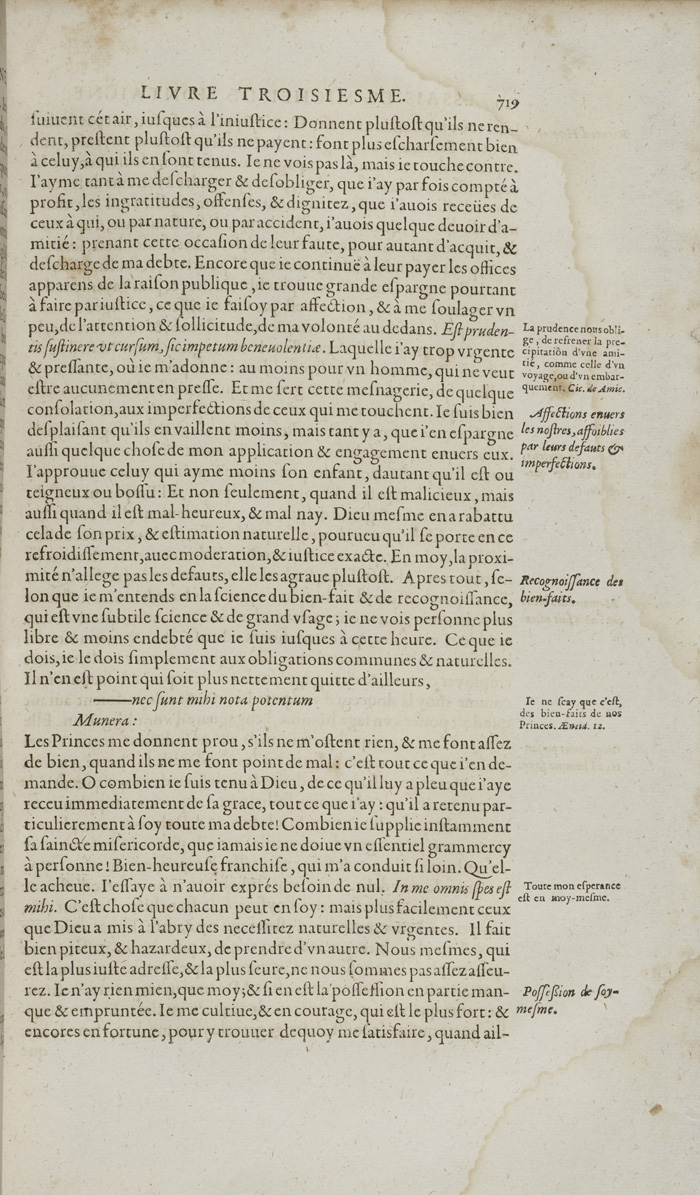 LIVRE TROISIESME.
719
ſuiuent cét air, iuſques à l'iniuſtice: Donnent pluſtoſt qu'ils ne ren-
dent, preſtent pluſtoſt qu'ils ne payent: font plus eſcharſement bien
à celuy, à qui ils en ſont tenus. Ie ne vois pas là, mais ie touche contre.
I'ayme tant à me deſcharger & deſobliger, que i'ay par fois compté à
profit, les ingratitudes, offenſes, & dignitez, que i'auois receües de
ceux à qui, ou par nature, ou par accident, i'auois quelque deuoir d'a-
mitié: prenant cette occaſion de leur faute, pour autant d'acquit, &
deſcharge de ma debte. Encore que ie continuë à leur payer les offices
apparens de la raiſon publique, ie trouue grande eſpargne pourtant
à faire par iuſtice, ce que ie faiſoy par affection, & à me ſoulager vn
peu, de l'attention & ſollicitude, de ma volonté au dedans. Eſt pruden-
tis ſuſtinere vt curſum, ſic impetum beneuolentiæ. Laquelle i'ay trop vrgente
& preſſante, où ie m'adonne: au moins pour vn homme, qui ne veut
eſtre aucunement en preſſe. Et me ſert cette meſnagerie, de quelque
conſolation, aux imperfections de ceux qui me touchent. Ie ſuis bien
deſplaiſant qu'ils en vaillent moins, mais tant y a, que i'en eſpargne
auſſi quelque choſe de mon application & engagement enuers eux.
I'approuue celuy qui ayme moins ſon enfant, dautant qu'il eſt ou
teigneux ou boſſu: Et non ſeulement, quand il eſt malicieux, mais
auſſi quand il eſt mal-heureux, & mal nay. Dieu meſme en a rabattu
cela de ſon prix, & eſtimation naturelle, pourueu qu'il ſe porte en ce
refroidiſſement, auec moderation, & iuſtice exacte. En moy, la proxi-
mité n'allege pas les defauts, elle les agraue pluſtoſt. Apres tout, ſe-
lon que ie m'entends en la ſcience du bien-fait & de recognoiſſance,
qui eſt vne ſubtile ſcience & de grand vſage; ie ne vois perſonne plus
libre & moins endebté que ie ſuis iuſques à cette heure. Ce que ie
dois, ie le dois ſimplement aux obligations communes & naturelles.
Il n'en eſt point qui ſoit plus nettement quitte d'ailleurs,
——nec ſunt mihi nota potentum
Munera:
Les Princes me donnent prou, s'ils ne m'oſtent rien, & me font aſſez
de bien, quand ils ne me font point de mal: c'eſt tout ce que i'en de-
mande. O combien ie ſuis tenu à Dieu, de ce qu'il luy a pleu que i'aye
receu immediatement de ſa grace, tout ce que i'ay: qu'il a retenu par-
ticulierement à ſoy toute ma debte! Combien ie ſupplie inſtamment
ſa ſaincte miſericorde, que iamais ie ne doiue vn eſſentiel grammercy
à perſonne! Bien-heureuſe franchiſe, qui m'a conduit ſi loin. Qu'el-
le acheue. I'eſſaye à n'auoir exprés beſoin de nul. In me omnis ſpes eſt
mihi. C'eſt choſe que chacun peut en ſoy: mais plus facilement ceux
que Dieu a mis à l'abry des neceſſitez naturelles & vrgentes. Il fait
bien piteux, & hazardeux, de prendre d'vn autre. Nous meſmes, qui
eſt la plus iuſte adreſſe, & la plus ſeure, ne nous ſommes pas aſſez aſſeu-
rez. Ie n'ay rien mien, que moy; & ſi en eſt la poſſeſſion en partie man-
que & empruntée. Ie me cultiue, & en courage, qui eſt le plus fort: &
encores en fortune, pour y trouuer dequoy me ſatisfaire, quand ail-
La prudence nous obli-
ge, de refrener la pre-
cipitation d'vne ami-
tié, comme celle d'vn
voyage, ou d'vn embar-
quement. Cic. de Amic.
Affections enuers
les noſtres, affoiblies
par leurs defauts &
imperfections.
Recognoiſſance des
bien-faits.
Ie ne ſçay que c'eſt,
des bien-faits de nos
Princes. Æneid. 12.
Toute mon eſperance
eſt en moy-meſme.
Poſſeſſion de ſoy-
meſme.